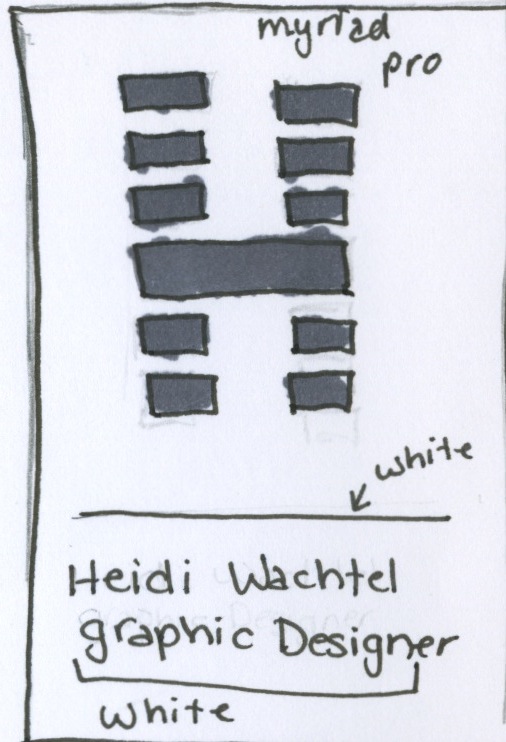 myriad
pro
white
Heidi Wachtel
graphic Designer
white